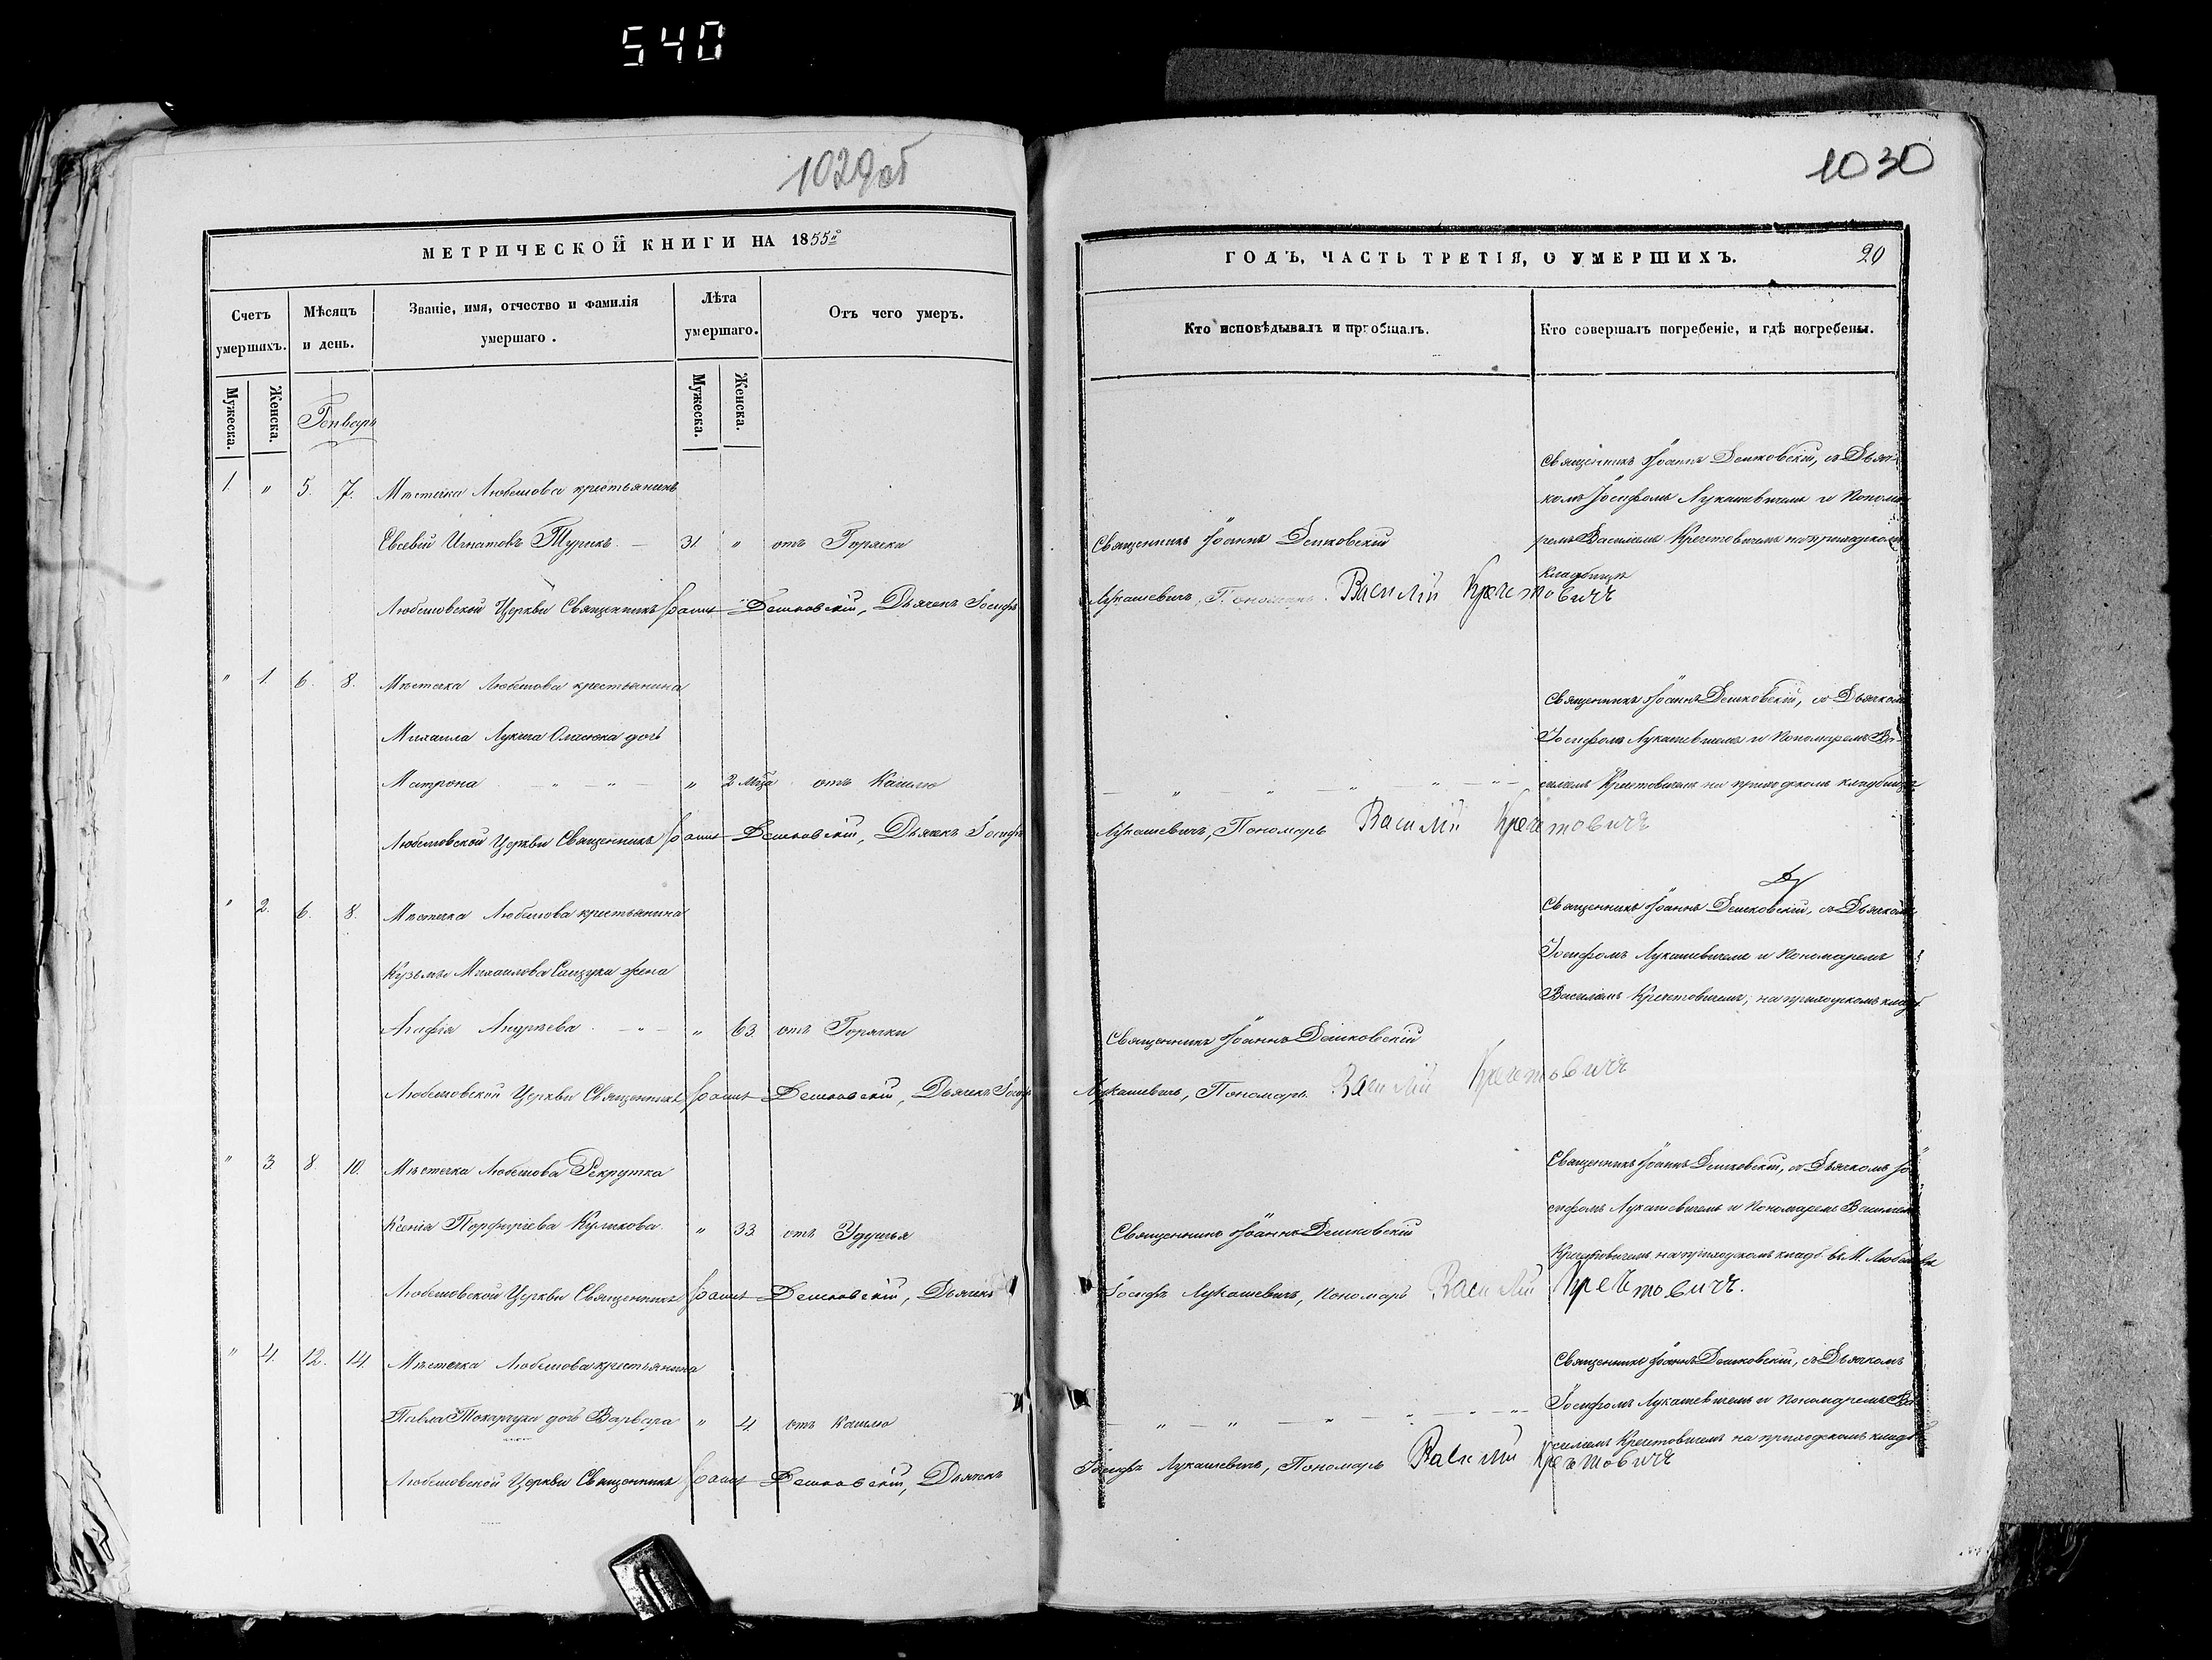 540
1029об
МЕТРИЧЕСКОЙ КНИГИ НА 1855й
Счетъ умершихъ.
Мѣсяцъ и день.
Званіе, имя, отчество и фамилія умершаго.
Лѣта умершаго.
Отъ чего умеръ.
Мужеска.
Женска.
Мужеска.
Женска.
Генварь
1. " 5. 7. Мѣстечка Любешова крестьянинъ
Евсевій Игнатовъ Турикъ — 31. " отъ Горячки
Любешовской Церкви Священникъ Іоаннъ Дешковскій, Дьячекъ Іосифъ
" 1. 6. 8. Мѣстечка Любешова крестьянина
Михаила Лукина дочь
Матрона — " — " — " 2 мѣся. отъ Кашлю
Любешовской Церкви Священникъ Іоаннъ Дешковскій, Дьячекъ Іосифъ
" 2. 6. 8. Мѣстечка Любешова крестьянина
Кузьмы Михаилова жена
Агафія Андреева — " — " 63. отъ Горячки
Любешовской Церкви Священникъ Іоаннъ Дешковскій, Дьячекъ Іосифъ
" 3. 8. 10. Мѣстечка Любешова Рекрутка
Ксенія Порфиріева Куликова " 33. отъ Удушья
Любешовской Церкви Священникъ Іоаннъ Дешковскій, Дьячекъ
" 4. 12. 14. Мѣстечка Любешова крестьянина
Павла Токарчука дочь Варвара " 4. отъ Кашлю
Любешовской Церкви Священникъ Іоаннъ Дешковскій, Дьячекъ
1030
ГОДЪ, ЧАСТЬ ТРЕТІЯ, О УМЕРШИХЪ. 20
Кто исповѣдывалъ и пріобщалъ.
Кто совершалъ погребеніе, и гдѣ погребены.
Священникъ Іоаннъ Дешковскій, съ Дьяч-
комъ Іосифомъ Лукашевичемъ и Понома-
Священникъ Іоаннъ Дешковскій
ремъ Василіемъ Кречетовичемъ на приходском
кладбищѣ
Лукашевичъ, Пономарь Василій Кречетовичъ
Священникъ Іоаннъ Дешковскій, съ Дьячкомъ
Іосифомъ Лукашевичемъ и Пономаремъ Ва-
— " — " — " — " — " —
силіемъ Кречетовичемъ на приходскомъ кладбищѣ
Лукашевичъ, Пономарь Василій Кречетовичъ
Священникъ Іоаннъ Дешковскій, съ Дьячкомъ
Іосифомъ Лукашевичемъ и Пономаремъ
Василіемъ Кречетовичемъ, на приходскомъ кладб.
Священникъ Іоаннъ Дешковскій
Лукашевичъ, Пономарь Василій Кречетовичъ
Священникъ Іоаннъ Дешковскій, съ Дьячкомъ Іо-
сифомъ Лукашевичемъ и Пономаремъ Василіемъ
Священникъ Іоаннъ Дешковскій
Кречетовичемъ на приходскомъ кладб. въ М. Любешовѣ
Іосифъ Лукашевичъ, Пономарь Василій Кречетовичъ.
Священникъ Іоаннъ Дешковскій, съ Дьячкомъ
Іосифомъ Лукашевичемъ и Пономаремъ Ва-
— " — " — " — " — " —
силіемъ Кречетовичемъ на приходскомъ кладб.
Іосифъ Лукашевичъ, Пономарь Василій Кречетовичъ